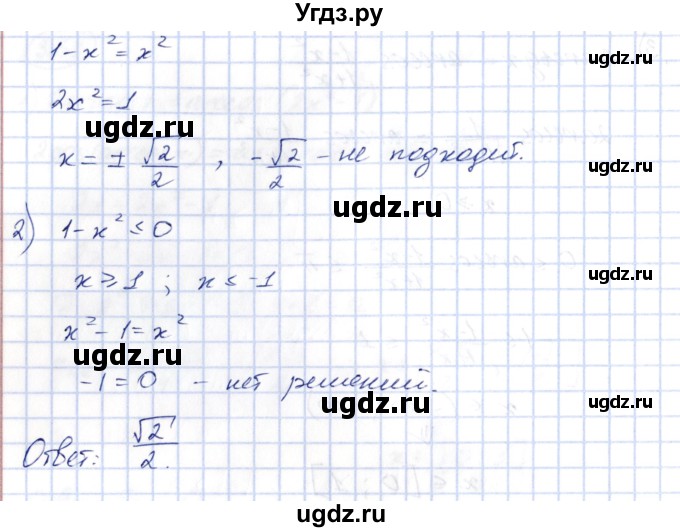 Угдз.ру
1-x²=x²
ugdz.ru
2x²=1
ugdz.ru
x=± √2/2 , -√2/2 - не подходит.
ugdz.ru
ugdz.ru
2) 1-x²≤0
ugdz.ru
x≥1 ; x≤-1
ugdz.ru
x²-1=x²
ugdz.ru
-1=0 - нет решений.
ugdz.ru
Ответ: √2/2.
ugdz.ru
ugdz.ru